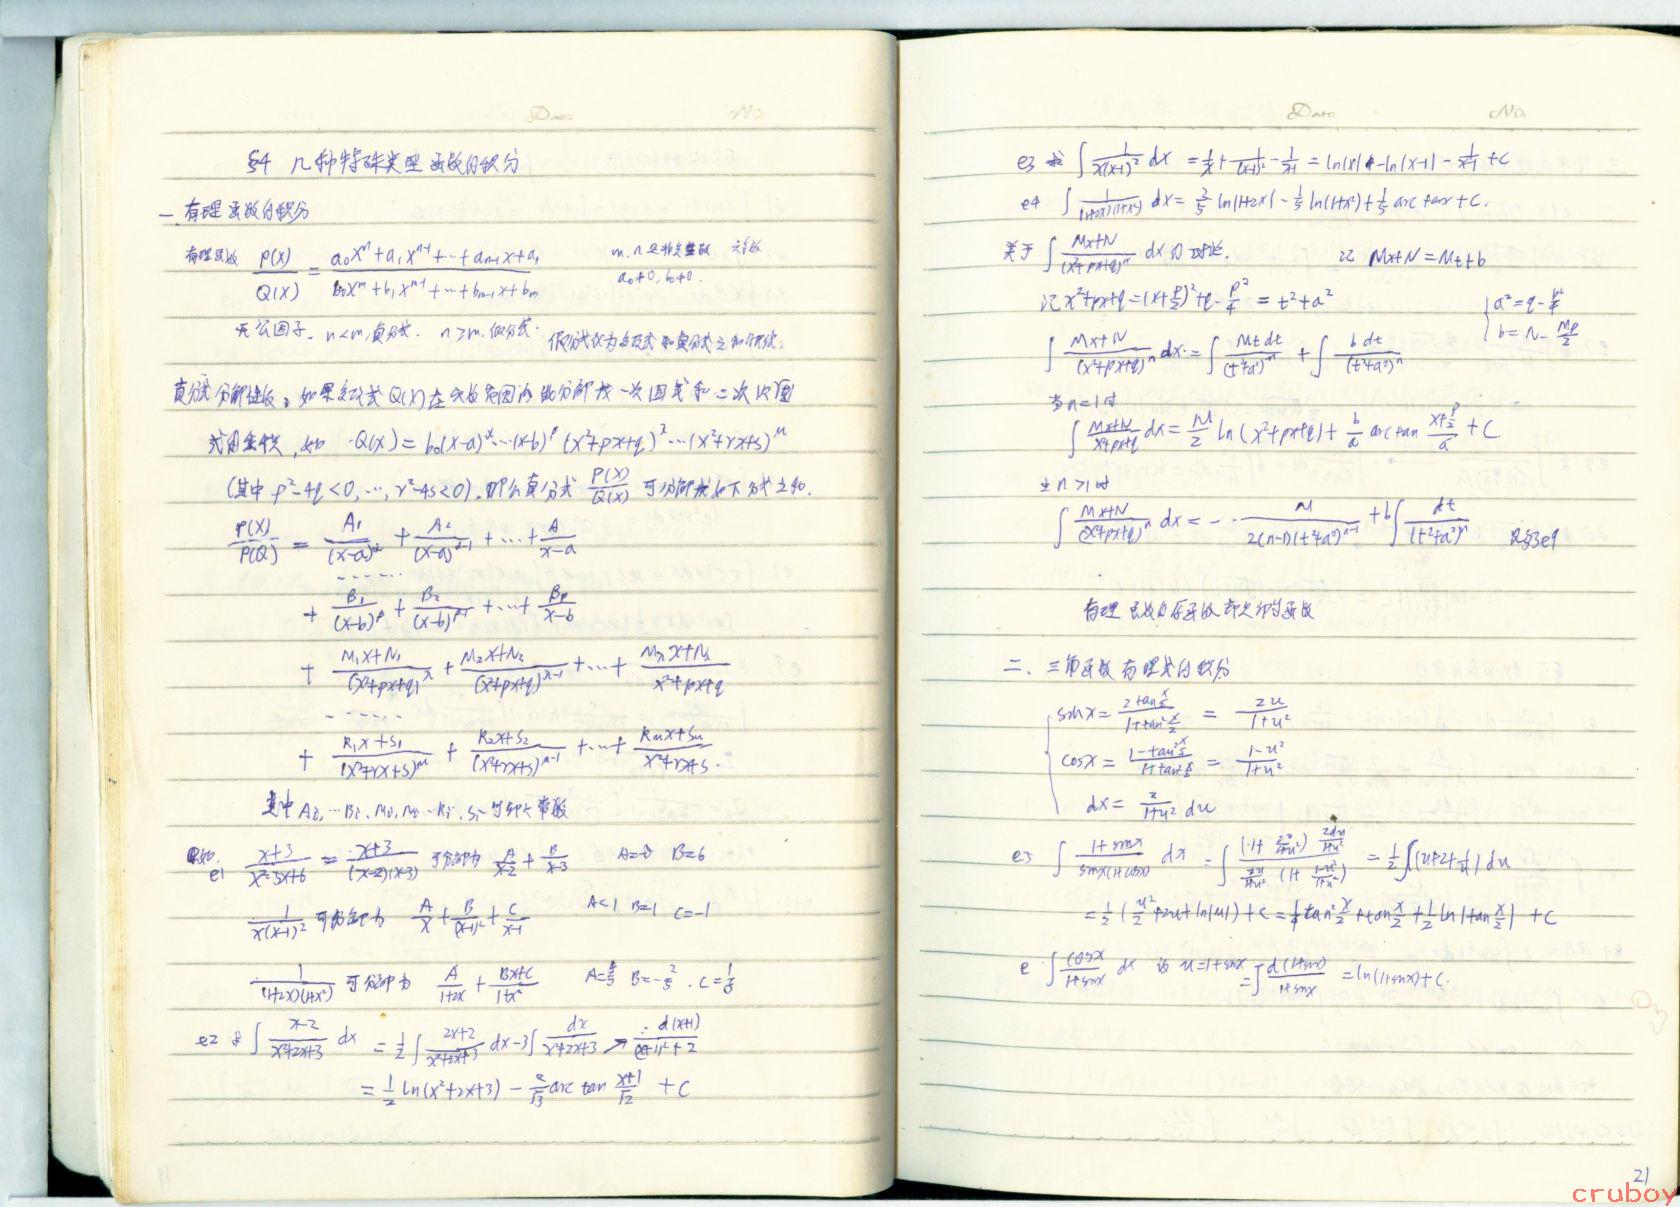 Date No.
§4 几种特殊类型函数的积分
一 有理函数的积分
有理函数 P(x)/Q(x) = (a₀xⁿ+a₁xⁿ⁻¹+…+aₙ₋₁x+aₙ)/(b₀xᵐ+b₁xᵐ⁻¹+…+bₘ₋₁x+bₘ) m、n是非负整数
a₀≠0, b₀≠0.
无公因子. n<m,真分式. n≥m,假分式. 假分式化为多项式和真分式之和的形式.
真分式分解定理: 如果多项式Q(x)在实数范围内能分解成一次因式和二次质因
式的乘积, 如 Q(x)=b₀(x-a)^α…(x-b)^β (x²+px+q)^λ…(x²+rx+s)^μ
(其中 p²-4q<0,…,r²-4s<0), 那么真分式 P(x)/Q(x) 可分解成如下分式之和.
P(x)/P(Q) = A₁/(x-a)^α + A₂/(x-a)^(α-1) +…+ A/(x-a)
……
+ B₁/(x-b)^β + B₂/(x-b)^(β-1) +…+ Bβ/(x-b)
+ (M₁x+N₁)/(x²+px+q)^λ + (M₂x+N₂)/(x²+px+q)^(λ-1) +…+ (Mλx+Nλ)/(x²+px+q)
……
+ (R₁x+S₁)/(x²+rx+s)^μ + (R₂x+S₂)/(x²+rx+s)^(μ-1) +…+ (Rμx+Sμ)/(x²+rx+s).
其中 Aᵢ,…Bᵢ、Mᵢ,Nᵢ…Rᵢ、Sᵢ 常数
例如.
e1 (x+3)/(x²-5x+6) = (x+3)/((x-2)(x-3)) 可分解为 A/(x-2) + B/(x-3) B=6
1/(x(x-1)²) 可分解为 A/x + B/(x-1)² + C/(x-1) A=1 B=1 C=-1
1/((1+2x)(1+x²)) 可分解为 A/(1+2x) + (Bx+C)/(1+x²) A=4/5 B=-2/5. C=1/5
e2 求 ∫(x-2)/(x²+2x+3) dx = 1/2 ∫(2x+2)/(x²+2x+3) dx - 3∫dx/(x²+2x+3) ↗ d(x+1)/((x+1)²+2)
= 1/2 ln(x²+2x+3) - arc tan (x+1)/√2 + C
Date No.
e3 求 ∫1/(x(x-1)²) dx = 1/x + 1/(x-1)² - 1/(x-1) = ln|x| - ln|x-1| - 1/(x-1) + C
e4 ∫1/((1+2x)(1+x²)) dx = 2/5 ln|1+2x| - 1/5 ln(1+x²) + 1/5 arc tan x + C.
关于 ∫(Mx+N)/(x²+px+q)ⁿ dx 的讨论. 记 Mx+N = Mt+b
记 x²+px+q = (x+p/2)²+q-p²/4 = t²+a² { a²=q-p²/4
b=N-Mp/2
∫(Mx+N)/(x²+px+q)ⁿ dx = ∫Mt dt/(t²+a²)ⁿ + ∫b dt/(t²+a²)ⁿ
当n=1时
∫(Mx+N)/(x²+px+q) dx = M/2 ln(x²+px+q) + b/a arc tan (x+p/2)/a + C
当n>1时
∫(Mx+N)/(x²+px+q)ⁿ dx = - M/(2(n-1)(t²+a²)ⁿ⁻¹) + b∫dt/(t²+a²)ⁿ 见§3e9
有理函数的原函数都是初等函数
二. 三角函数有理式的积分
{ sinx = 2tan(x/2)/(1+tan²(x/2)) = 2u/(1+u²)
cosx = (1-tan²(x/2))/(1+tan²(x/2)) = (1-u²)/(1+u²)
dx = 2/(1+u²) du
e3 ∫(1+sinx)/(sinx(1+cosx)) dx = ∫(1+2u/(1+u²)) 2du/(1+u²) / (2u/(1+u²) (1+(1-u²)/(1+u²))) = 1/2 ∫(u+2+1/u) du
= 1/2 (u²/2+2u+ln|u|) + C = 1/4 tan²(x/2) + tan(x/2) + 1/2 ln|tan(x/2)| + C
e ∫cosx/(1+sinx) dx 设 u=1+sinx = ∫d(1+sinx)/(1+sinx) = ln(1+sinx)+C.
21
cruboy